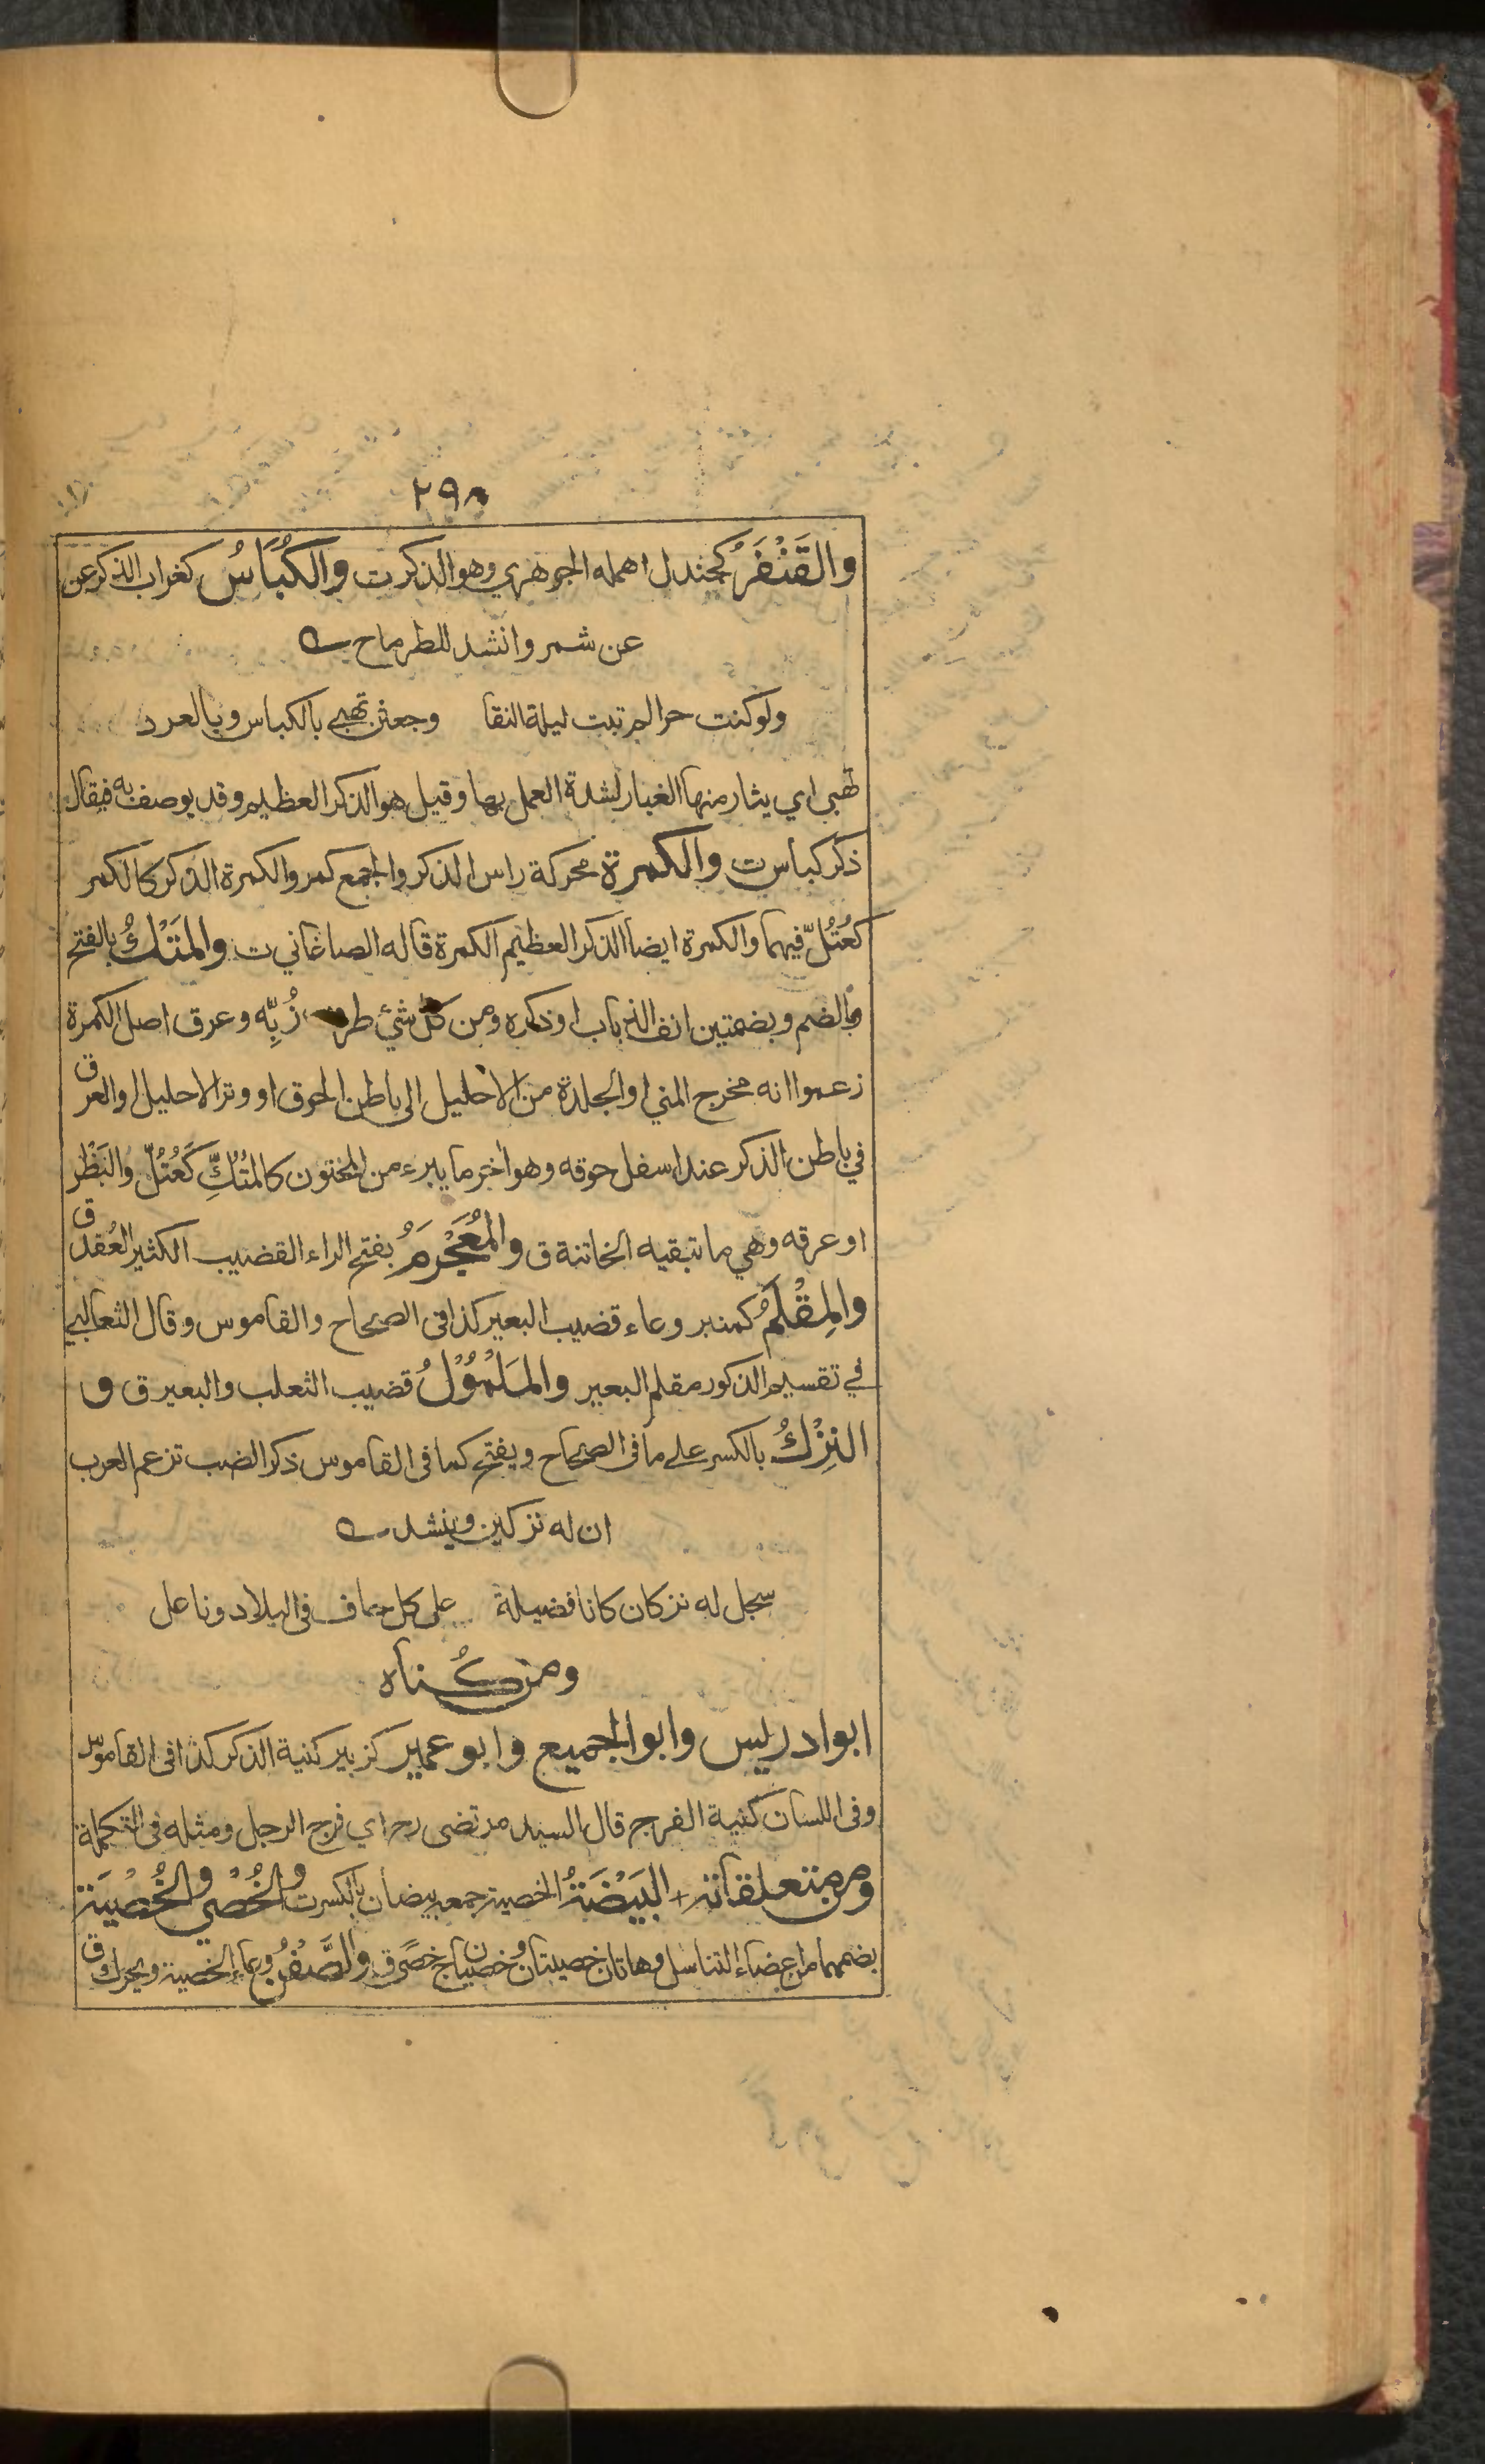 ٢٩٨
والقَنْفَرُ كجندل اهمله الجوهري وهو الذكر ت والكُبَاسُ كغراب الذكر عن
عن شمر وانشد للطرماح
ولو كنت حرا لم تبت ليلة النقا وجعثن تهبى بالكباس وبالعرد
تهبى اي يثار منها الغبار لشدة العمل بها وقيل هو الذكر العظيم وقد يوصف به فيقال
ذكر كباس ت والكمرة محركة راس الذكر والجمع كمر والكمرة الذكر كالكمر
كعُتُلّ فيهما والكمرة ايضا الذكر العظيم الكمرة قاله الصاغاني ت والمَتْكُ بالفتح
وبالضم وبضمتين انف الذباب او ذكره ومن كل شئ طرف زُبِّه وعرق اصل الكمرة
زعموا انه مخرج المني او الجلدة من الاحليل الى باطن الحوق او وتر الاحليل او العرق
في باطن الذكر عند اسفل حوقه وهو اخر ما يبرء من المختون كالمُتُكِّ كَعُتُلّ والبَظْر
او عرقه وهي ما تبقيه الخاتنة ق والمُعَجْرَمُ بفتح الراء القضيب الكثير العُقد ق
والمِقْلَمُ كمنبر وعاء قضيب البعير كذا فى الصحاح والقاموس وقال الثعالبي
في تقسيم الذكور مقلم البعير والمَلْمُوْلُ قضيب الثعلب والبعير ق و
النِزْكُ بالكسر على ما فى الصحاح ويفتح كما فى القاموس ذكر الضب تزعم العرب
ان له نزكين وينشد
سبحل له نزكان كانا فضيلة على كل حاف فى البلاد وناعل
ومن كُناه
ابو ادريس وابو الجميع وابو عمير كزبير كنية الذكر كذا فى القاموس
وفى اللسان كنية الفرج قال السيد مرتضى رح اي فرج الرجل ومثله فى التكملة
ومن متعلقاته + البَيْضَةُ الخصية جمعه بيضان بالكسر ت والخُصْي والخُصْيَة
بضمهما من اعضاء التناسل وهاتان خصيتان وخصيان ج خصًى ق والصَّفْنُ وعاء الخصية ويحرك ق